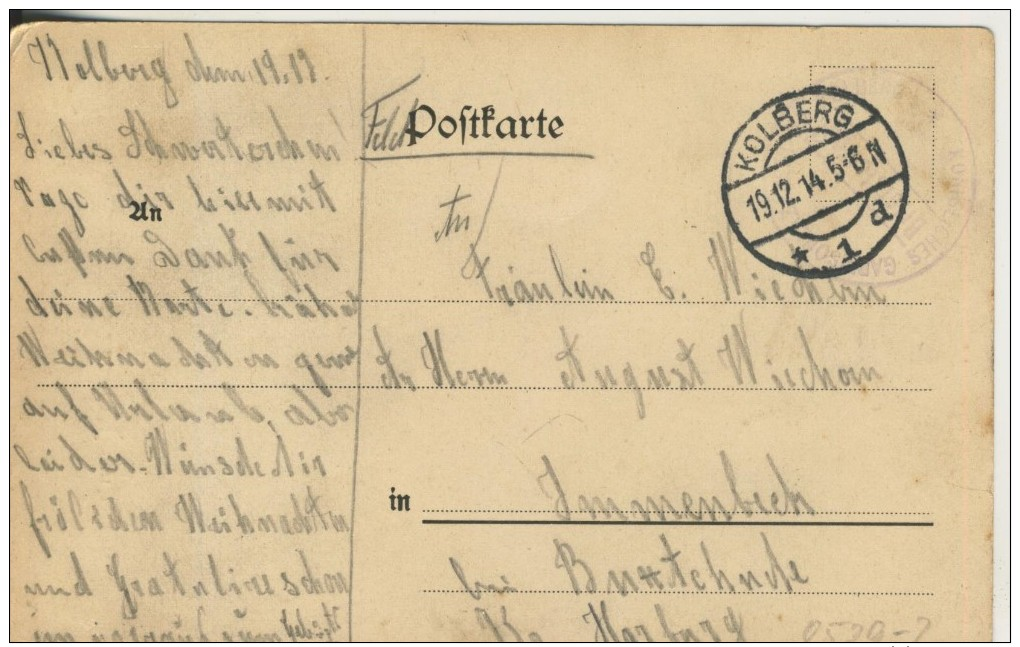 Kolberg dem 19.12.
Liebes Schwesterchen!
Sage dir hiermit
besten Dank für
deine Karte. käme
Weihnachten gern
auf Urlaub, aber
leider. Wünsche dir
fröhchem Weihnachten
und gratuliere schon
im voraus zum Geburt
Feld Postkarte
An
An
Fräulein E. Wiechern
Ar Herrn August Wiechern
in Immenbeck
bei Buxtehude
Kr. Harburg
8539-2
KOLBERG
19.12.14.5-6 N
* 1 d